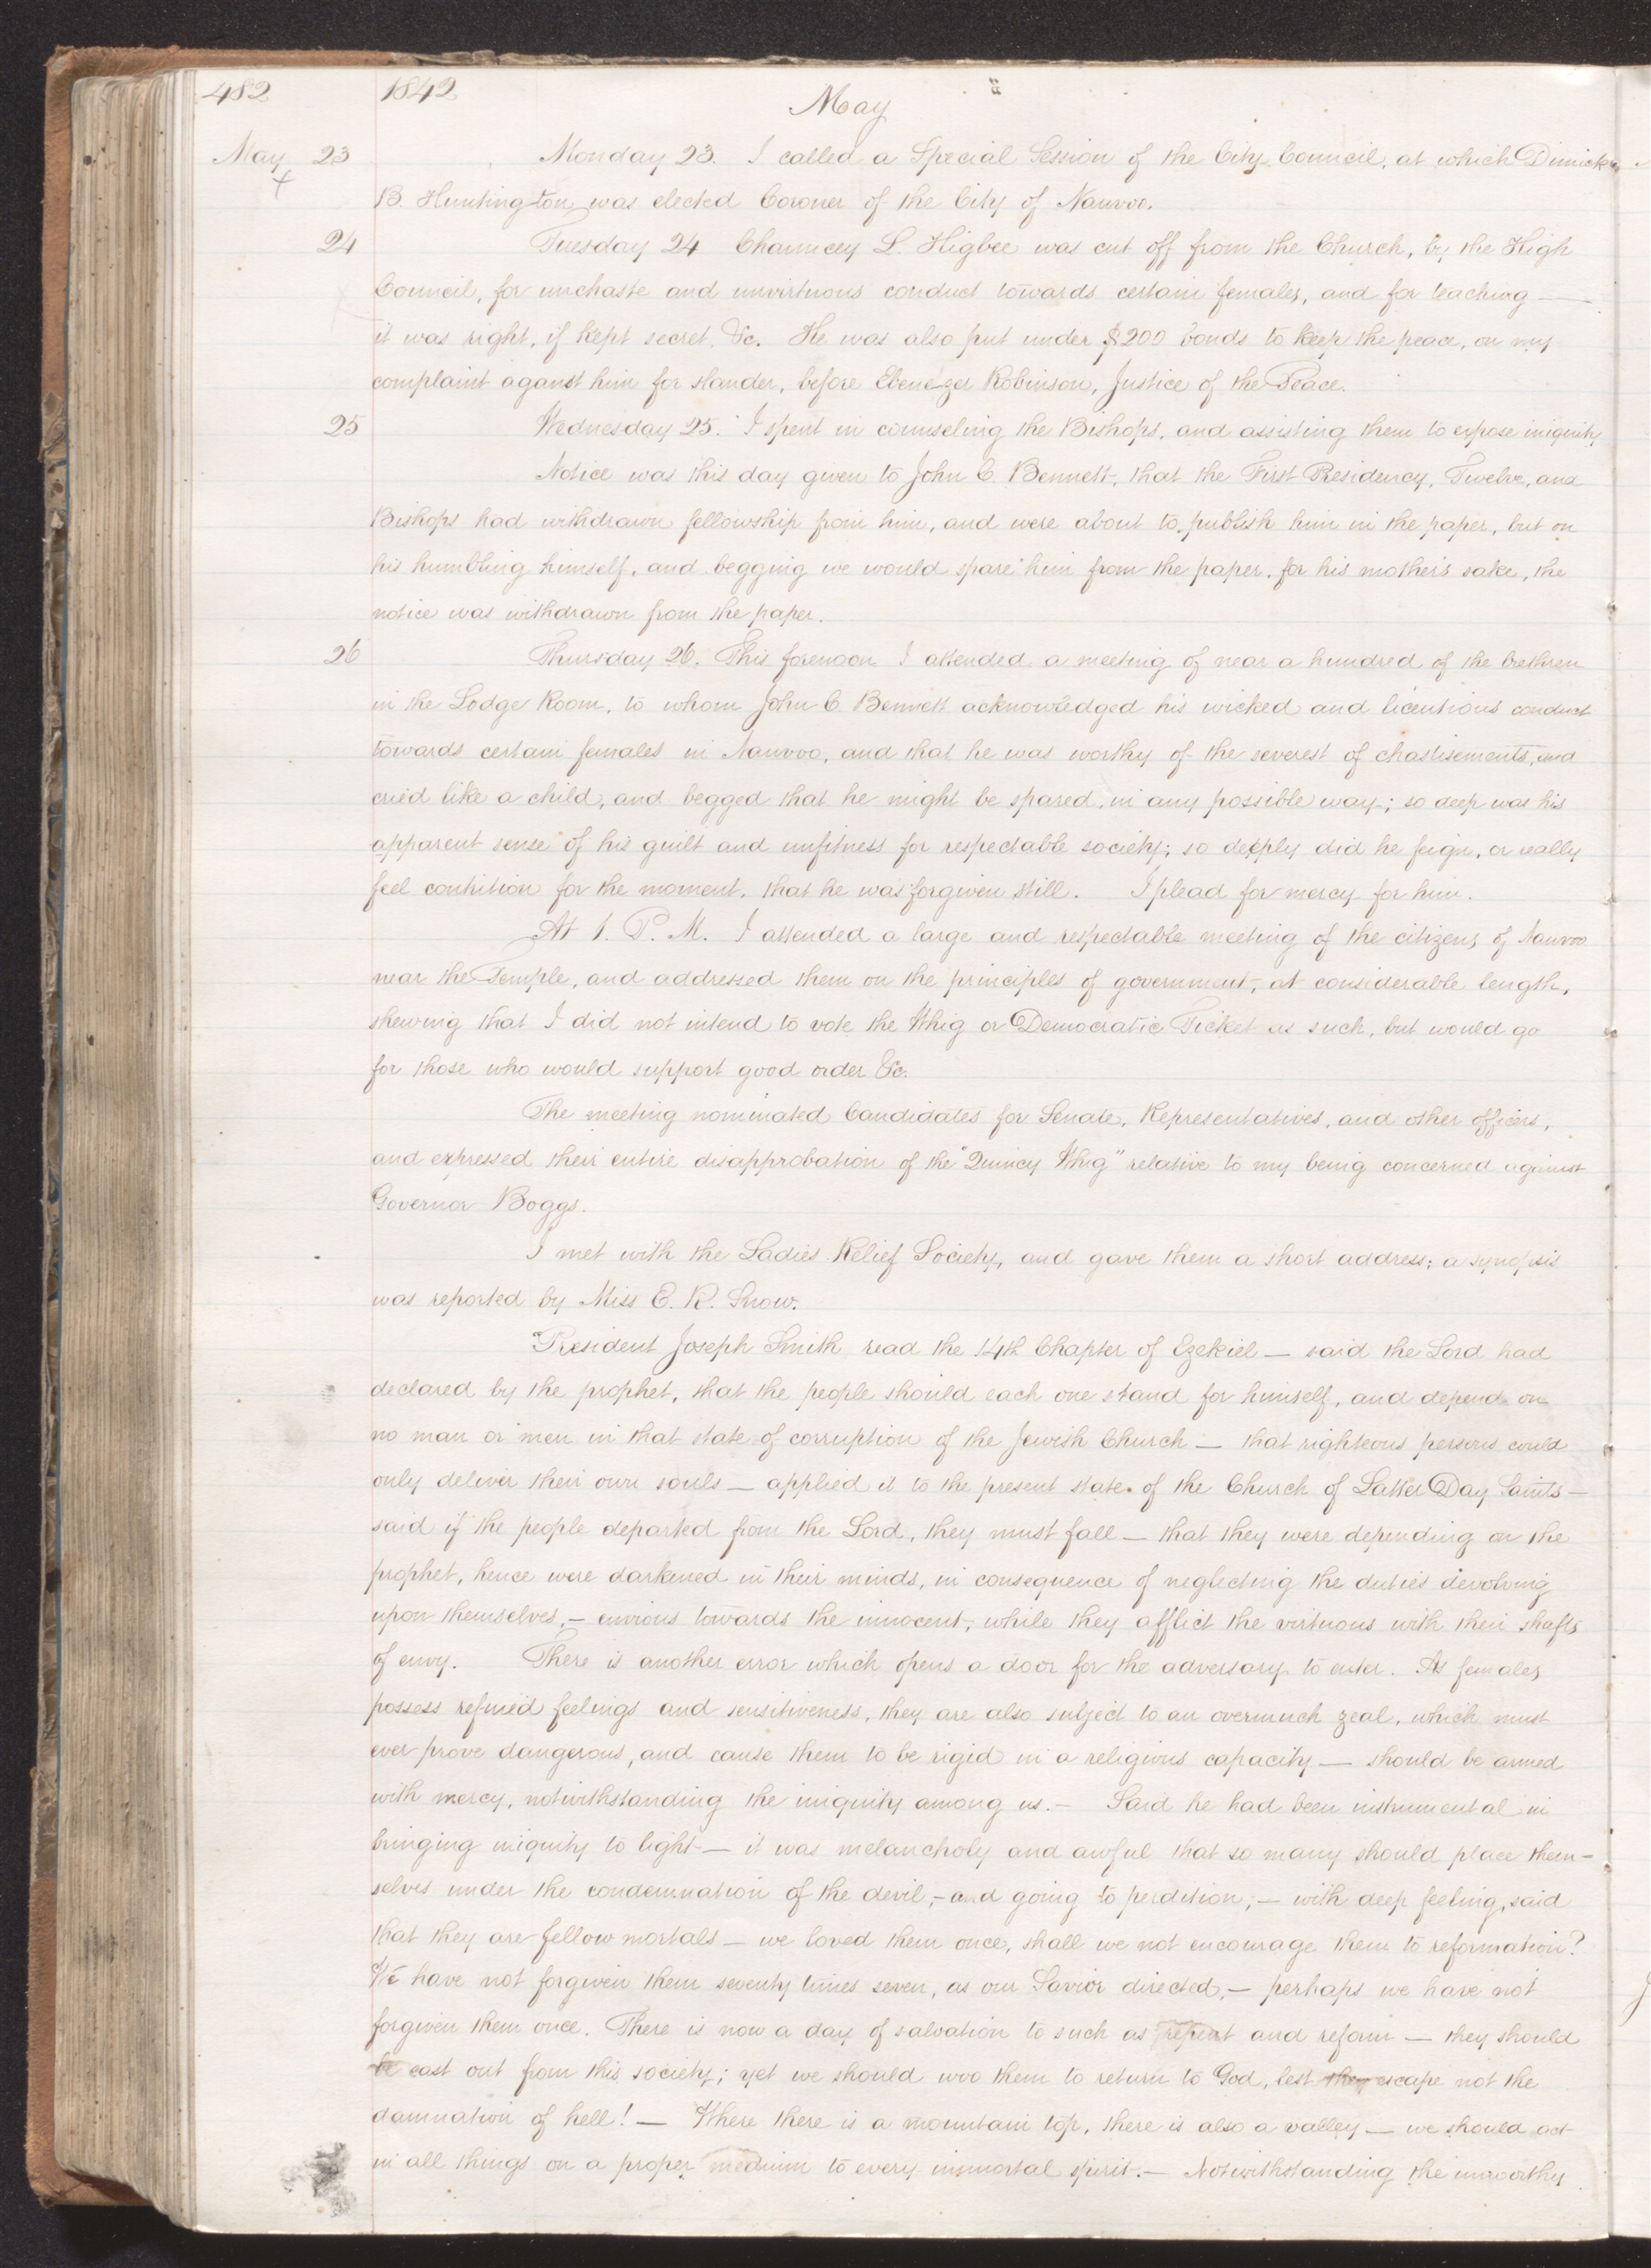 482 1842 May
May 23 Monday 23. I called a Special Session of the City Council, at which Dimick
B. Huntington was elected Coroner of the City of Nauvoo.
24 Tuesday 24 Chauncey L. Higbee was cut off from the Church, by the High
Council, for unchaste and unvirtuous conduct towards certain females, and for teaching —
it was right, if kept secret, &c. He was also put under $200 bonds to keep the peace, on my
complaint against him for slander, before Ebenezer Robinson, Justice of the Peace.
25 Wednesday 25. I spent in counseling the Bishops, and assisting them to expose iniquity
Notice was this day given to John C. Bennett, that the First Presidency, Twelve, and
Bishops had withdrawn fellowship from him, and were about to publish him in the paper, but on
his humbling himself, and begging we would spare him from the paper, for his mother's sake, the
notice was withdrawn from the paper.
26 Thursday 26. This forenoon I attended a meeting of near a hundred of the brethren
in the Lodge Room, to whom John C. Bennett acknowledged his wicked and licentious conduct
towards certain females in Nauvoo, and that he was worthy of the severest of chastisements, and
cried like a child, and begged that he might be spared, in any possible way; so deep was his
apparent sense of his guilt and unfitness for respectable society; so deeply did he feign, or really
feel contrition for the moment, that he was forgiven still. I plead for mercy for him.
At 1. P. M. I attended a large and respectable meeting of the citizens of Nauvoo
near the Temple, and addressed them on the principles of government, at considerable length,
shewing that I did not intend to vote the Whig or Democratic Ticket as such, but would go
for those who would support good order &c.
The meeting nominated Candidates for Senate, Representatives, and other officers,
and expressed their entire disapprobation of the "Quincy Whig" relative to my being concerned against
Governor Boggs.
I met with the Ladies Relief Society, and gave them a short address; a synopsis
was reported by Miss E. R. Snow.
"President Joseph Smith read the 14th Chapter of Ezekiel — said the Lord had
declared by the prophet, that the people should each one stand for himself, and depend on
no man or men in that state of corruption of the Jewish Church — that righteous persons could
only deliver their own souls — applied it to the present state of the Church of Latter Day Saints —
said if the people departed from the Lord, they must fall — that they were depending on the
prophet, hence were darkened in their minds, in consequence of neglecting the duties devolving
upon themselves, — envious towards the innocent, while they afflict the virtuous with their shafts
of envy. There is another error which opens a door for the adversary to enter. As females
possess refined feelings and sensitiveness, they are also subject to an overmuch zeal, which must
ever prove dangerous, and cause them to be rigid in a religious capacity — should be armed
with mercy, notwithstanding the iniquity among us. — Said he had been instrumental in
bringing iniquity to light — it was melancholy and awful that so many should place them-
selves under the condemnation of the devil, — and going to perdition; — with deep feeling, said
that they are fellow mortals — we loved them once, shall we not encourage them to reformation?
We have not forgiven them seventy times seven, as our Savior directed, — perhaps we have not
forgiven them once. There is now a day of salvation to such as repent and reform — they should
be cast out from this society; yet we should woo them to return to God, lest they escape not the
damnation of hell! — Where there is a mountain top, there is also a valley — we should act
in all things on a proper medium to every immortal spirit. — Notwithstanding the unworthy